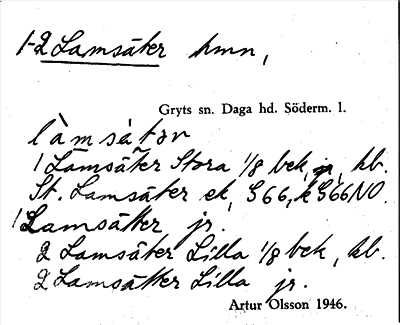 1-2 Lamsäter hmn,
Gryts sn. Daga hd. Söderm. l.
làmsátər
1 Lamsäter Stora 1/8 bek, kb.
St. Lamsäter ek, G66, k G66NO.
1 Lamsätter jr.
2 Lamsäter Lilla 1/8 bek, kb.
2 Lamsätter Lilla jr.
Artur Olsson 1946.